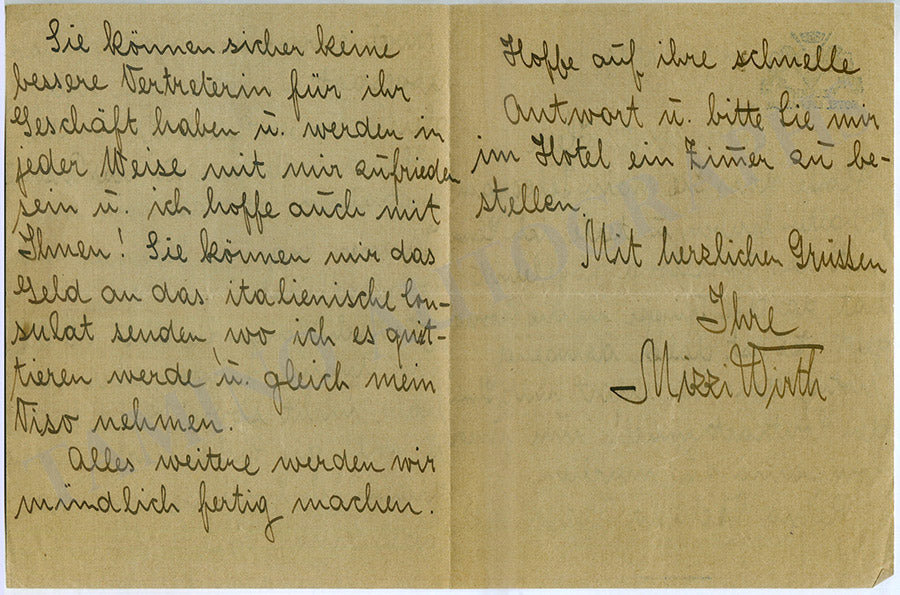 Sie können sicher keine
bessere Vertreterin für ihr
Geschäft haben u. werden in
jeder Weise mit mir zufrieden
sein u. ich hoffe auch mit
Ihnen! Sie können mir das
Geld an das italienische Con-
sulat senden, wo ich es quit-
tieren werde u. gleich mein
Viso nehmen.
Alles weitere werden wir
mündlich fertig machen.
Hoffe auf ihre schnelle
Antwort u. bitte Sie mir
im Hotel ein Zimer zu be-
stellen.
Mit herzlichen Grüssen
Ihre
Mizzi Wirth